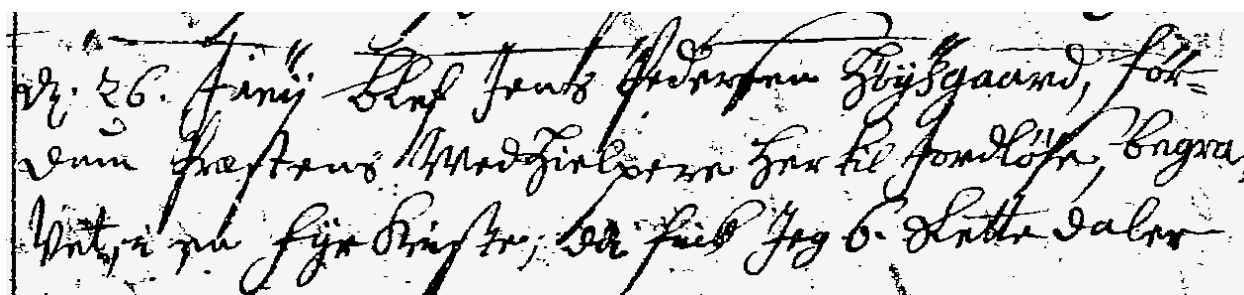 d. 26. Junij blef Jens Pedersen Höysgaard, för-
dum Præstens Medhielpere her til Jordlöse, begra,
vet, i en fyr kiiste, da fick Jeg 6. Slette daler